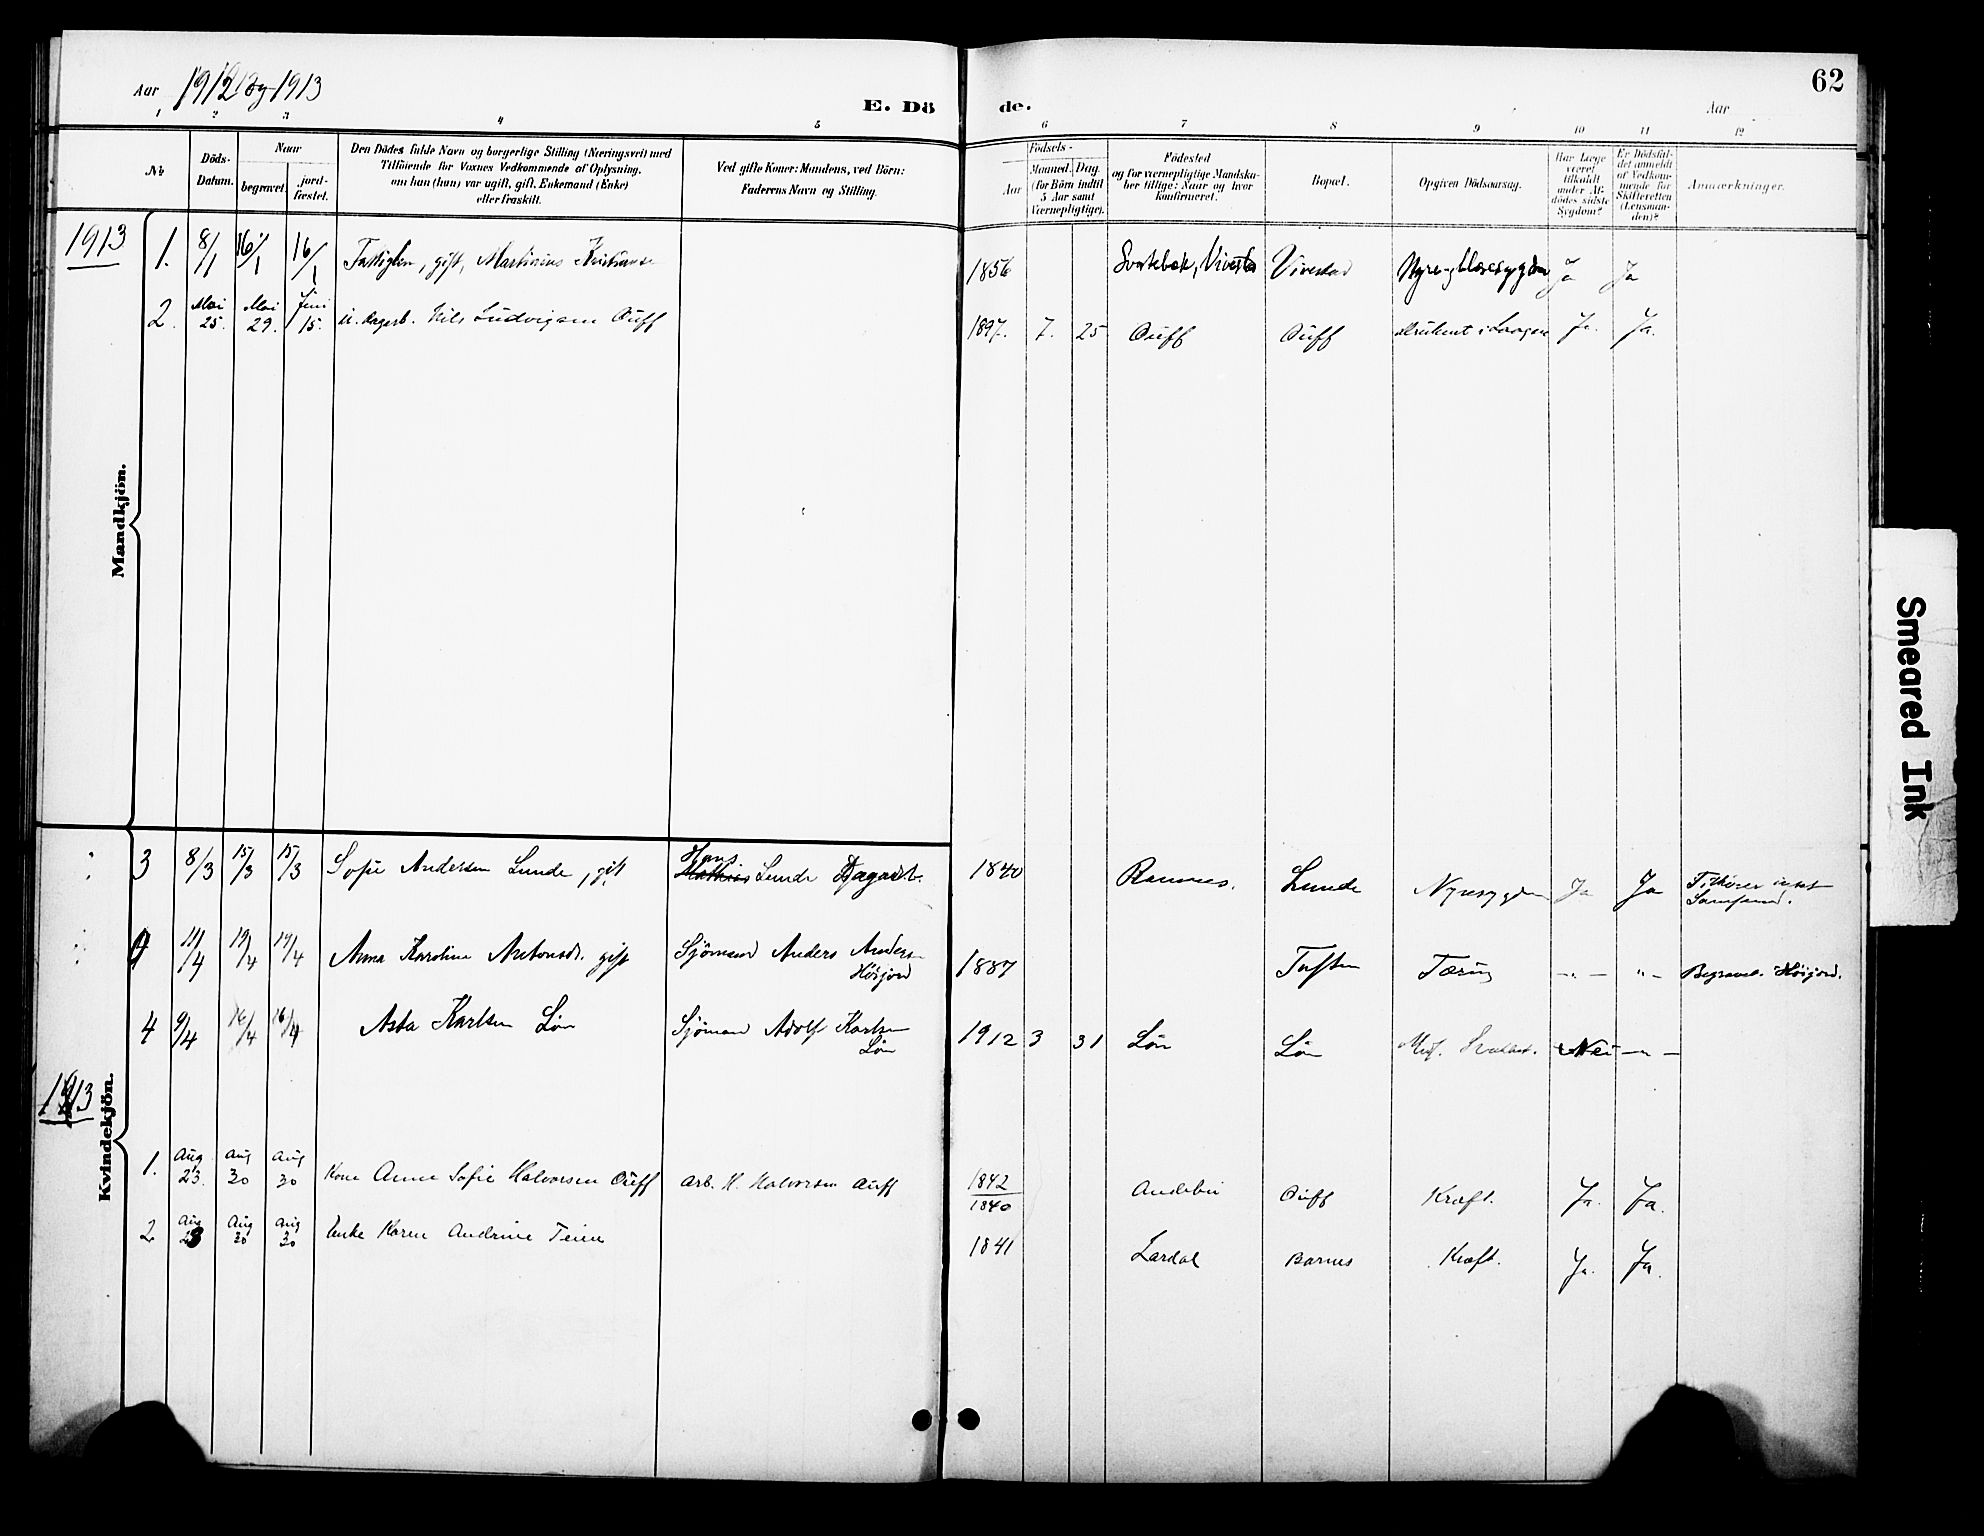 62
Aar 1912 og 1913
E. Döde.
Aar
1 2 3 4 5 6 7 8 9 10 11 12
No
Döds-
Datum.
Naar
begravet.
jord-
fæstet.
Den Dödes fulde Navn og borgerlige Stilling (Næringsvei) med
Tilföiende for Voxnes Vedkommende af Oplysning,
om han (hun) var ugift, gift, Enkemand (Enke)
eller fraskilt.
Ved gifte Koner: Mandens, ved Börn:
Faderens Navn og Stilling.
Födsels-
Aar
Maaned. Dag.
(for Börn indtil
5 Aar samt
Værnepligtige).
Födested
og for værnepligtige Mandska-
ber tillige: Naar og hvor
konfirmeret.
Bopæl.
Opgiven Dödsaarsag.
Har Læge
været
tilkaldt
under Af-
dödes sidste
Sygdom?
Er Dödsfal-
det anmeldt
af Vedkom-
mende for
Skifteretten
(Lensman-
den)?
Anmærkninger.
Mandkjön.
1913
1. 8/1 16/1 16/1 Fattiglem, gift, Martinius Kristiansen 1856 Svartebæk, Vivestad Vivestad Nyre- og blæresygdom Ja Ja
2. Mai 25. Mai 29. Juni 15. Nils Ludvigsen Ouff 1897. 7. 25 Ouff Ouff druknet i Laagen Ja. Ja.
Kvindekjön.
3 8/3 15/3 15/3 Sofie Andersen Lunde, gift Hans Mathias Lunde Dagarb. 1840 Ramnes. Lunde Nyresygdom Ja Ja Tilhører intet
Samfund.
4 11/4 19/4 19/4 Anna Karoline Antonsdr. gift Sjömand Anders Anders
Höijord 1887 Toften Tæring -"- "- Begravet i Höijord.
4 9/4 16/4 16/4 Asta Karlsen Lön Sjömand Adolf Karlsen
Lön 1912 3 31 Lön Lön Nei -"-
1913
1. Aug 23. Aug 30 Aug 30 Kone Anne Sofie Halvorsen Ouff arb. H. Halvorsen Auff 1842
1840 Andebu Ouff Kræft. Ja. Ja.
2 Aug 23 Aug 30 Aug 30 Enke Karen Andrine Teien 1841 Lardal Barnes Kræft. Ja. Ja.
Smeared Ink